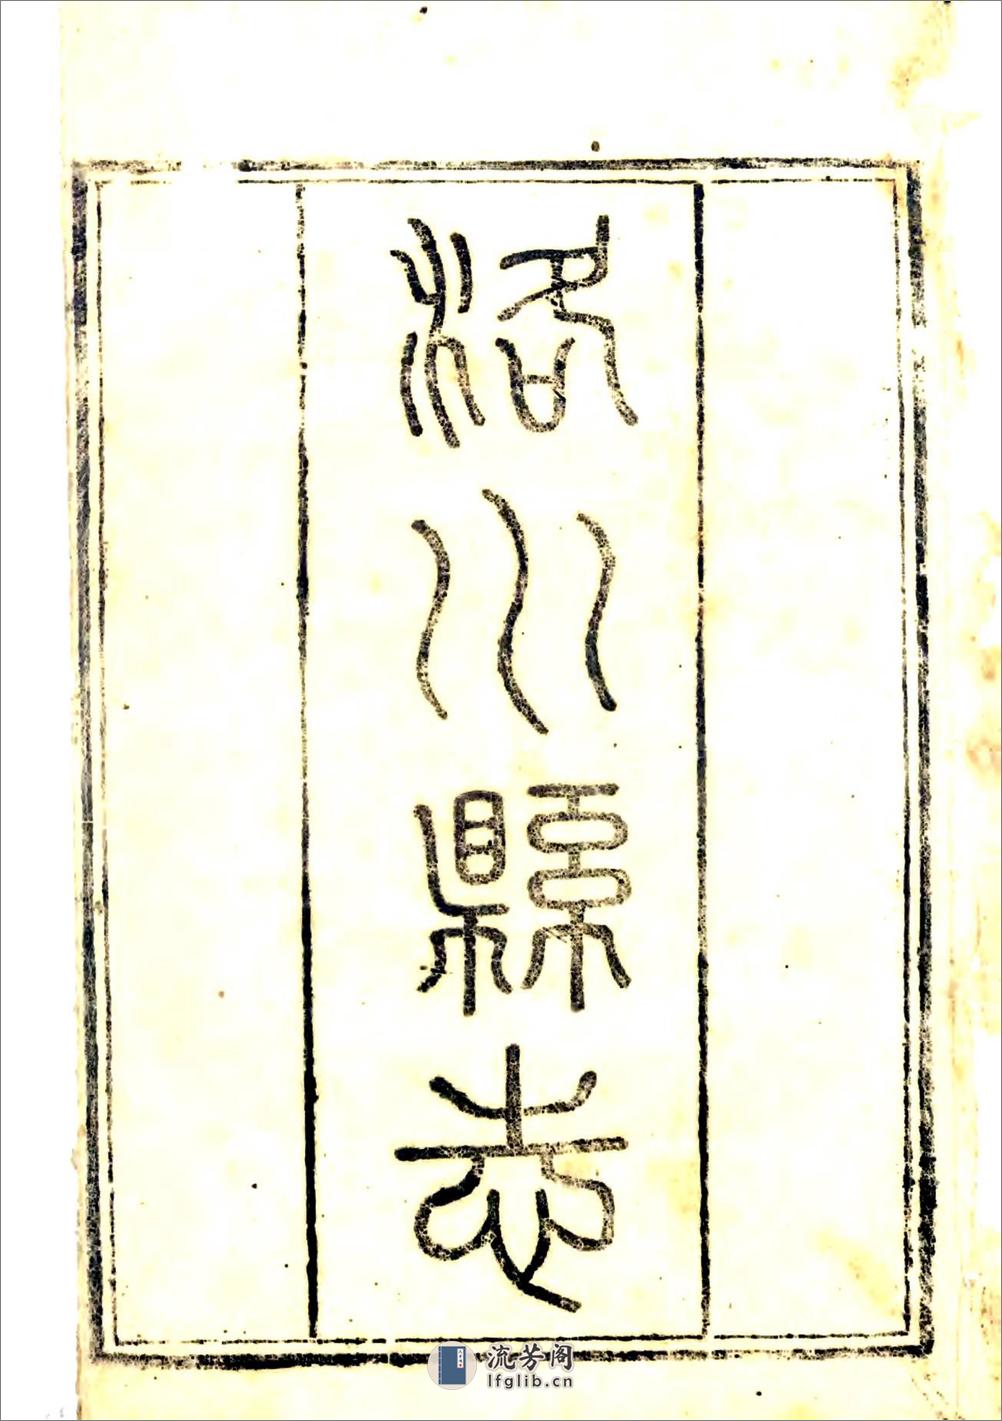 洛川縣志
流芳阁
lfglib.cn